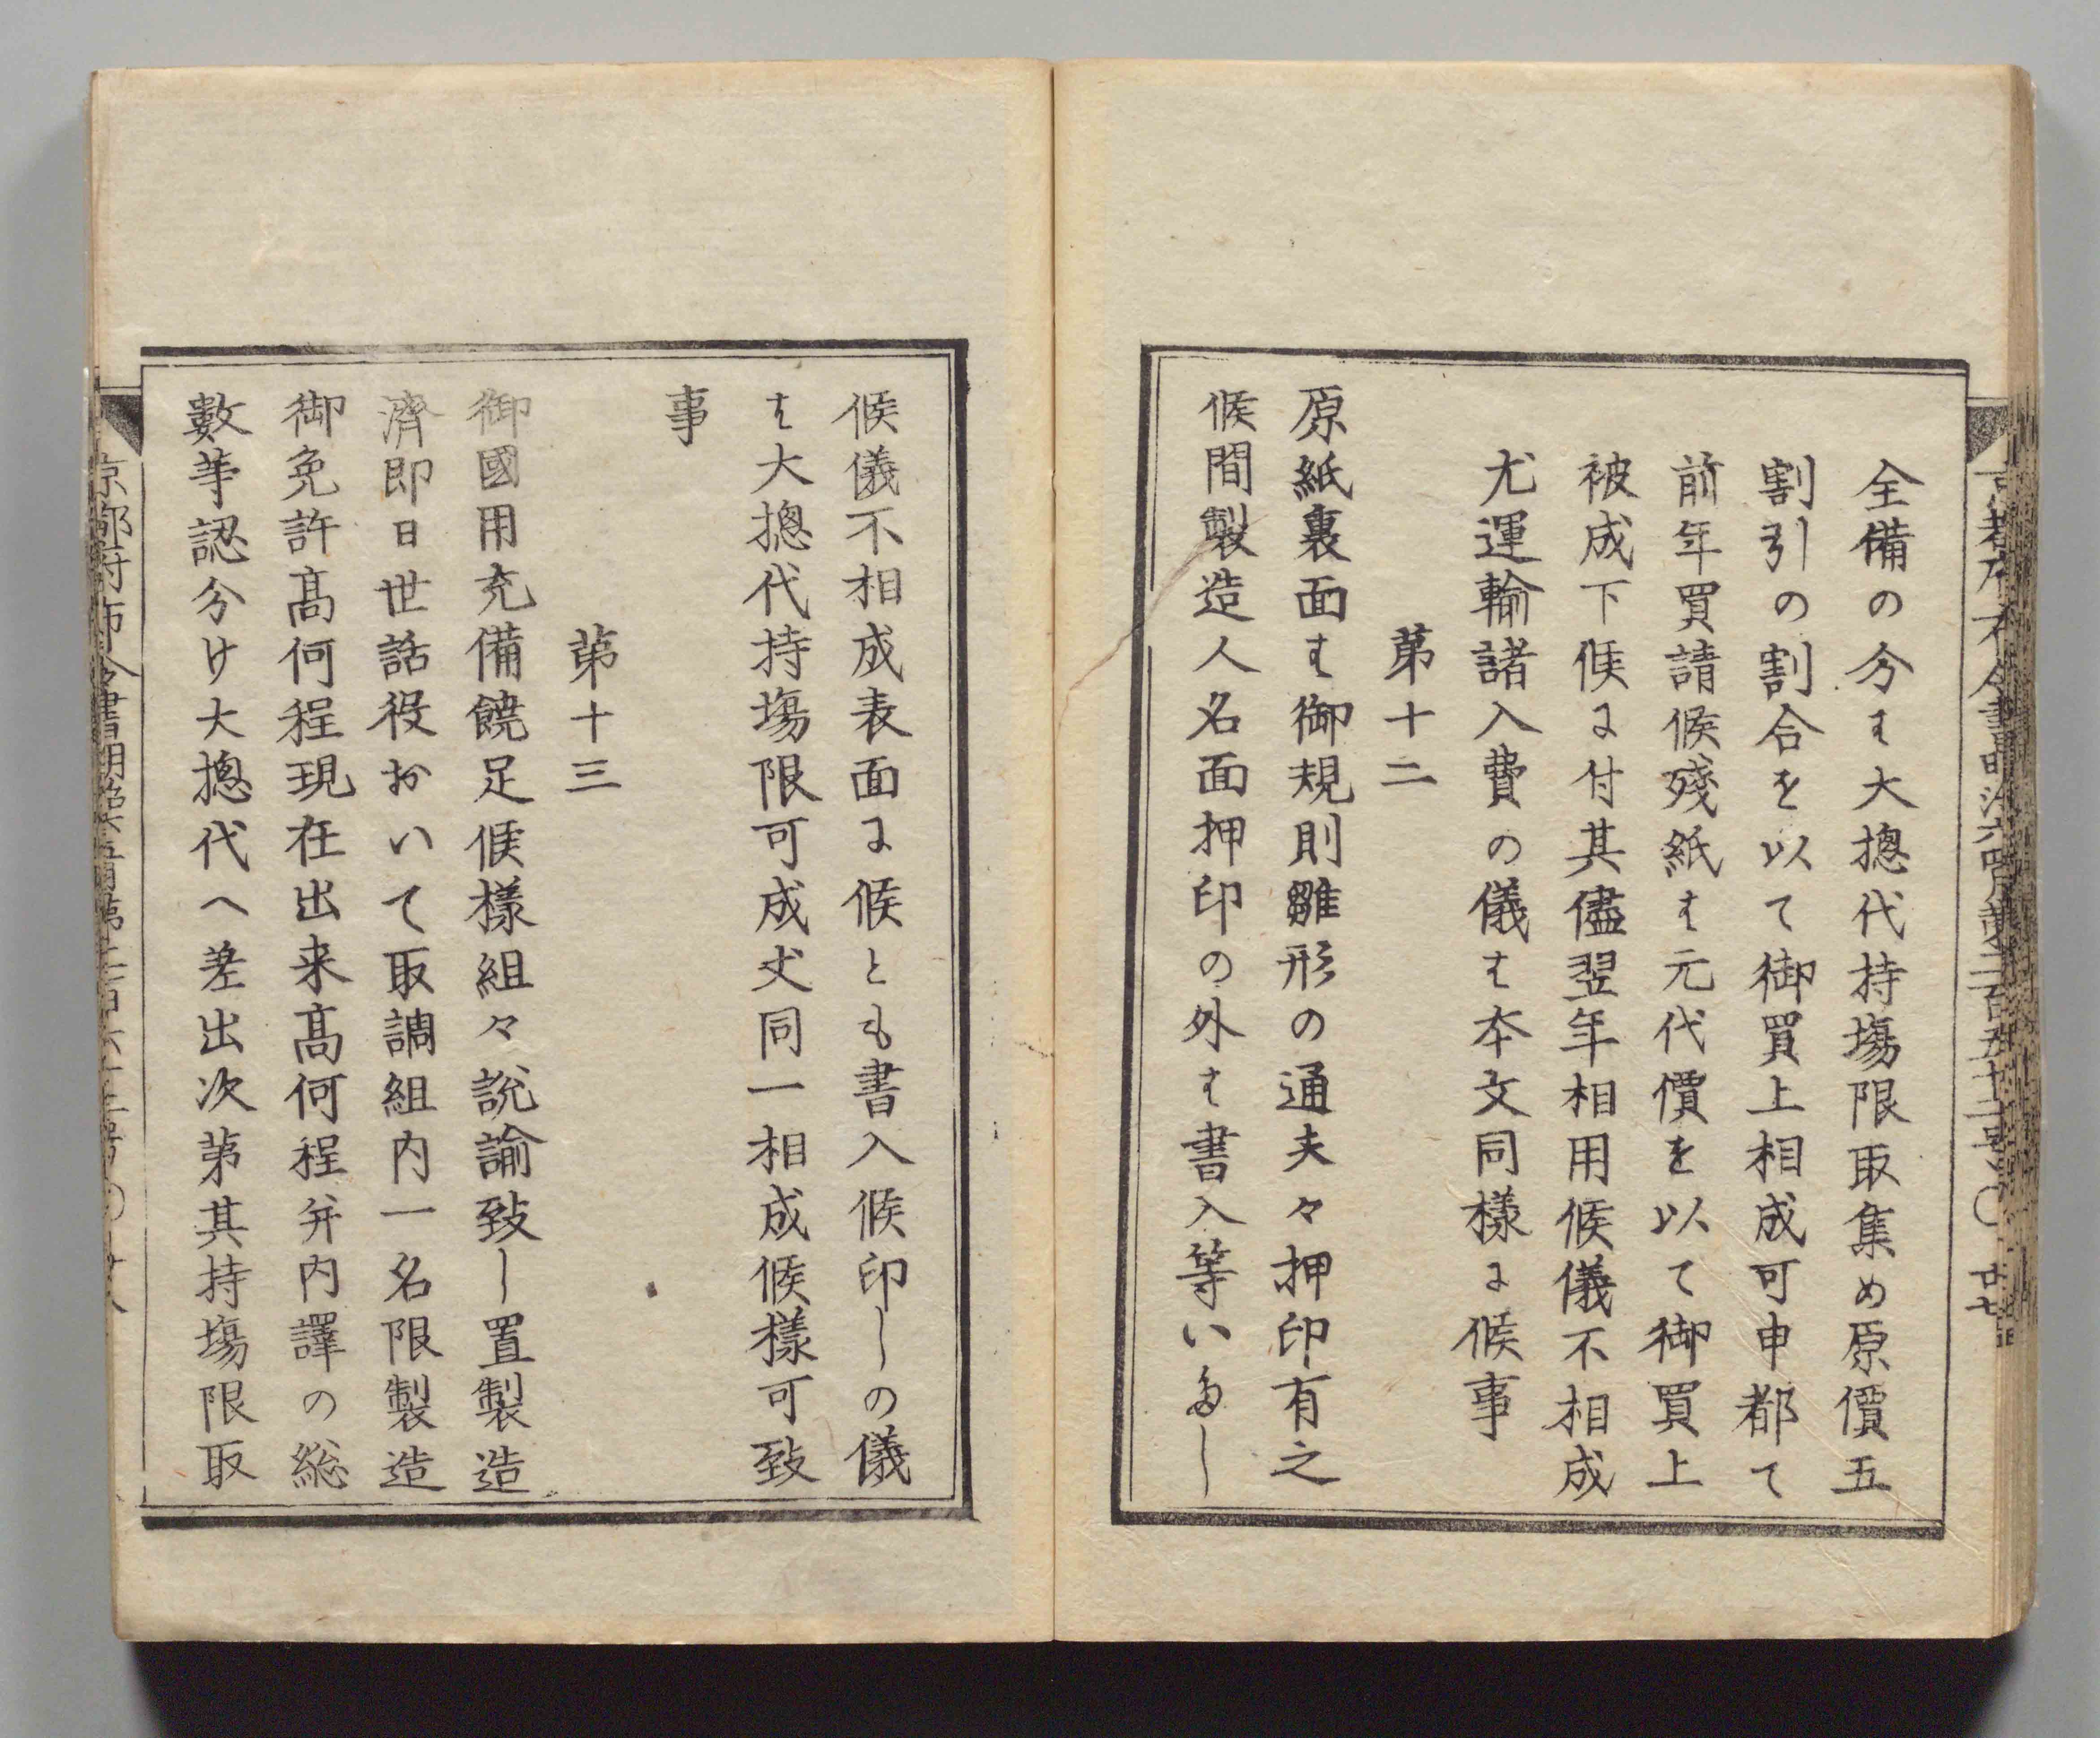 全備の分ハ大摠代持塲限取集め原價五
割引の割合を以て御買上相成可申都て
前年買請候殘紙ハ元代價を以て御買上
被成下候に付其儘翌年相用候儀不相成
尤運輸諸入費の儀ハ本文同樣に候事
第十二
原紙裏面ハ御規則雛形の通夫々押印有之
候間製造人名面押印の外ハ書入等いたし
候儀不相成表面に候とも書入候印しの儀
ハ大摠代持塲限可成丈同一相成候樣可致
事
第十三
御國用充備饒足候樣組々説諭致し置製造
濟即日世話役おいて取調組内一名限製造
御免許髙何程現在出来髙何程并内譯の総
數等認分け大摠代へ差出次第其持塲限取